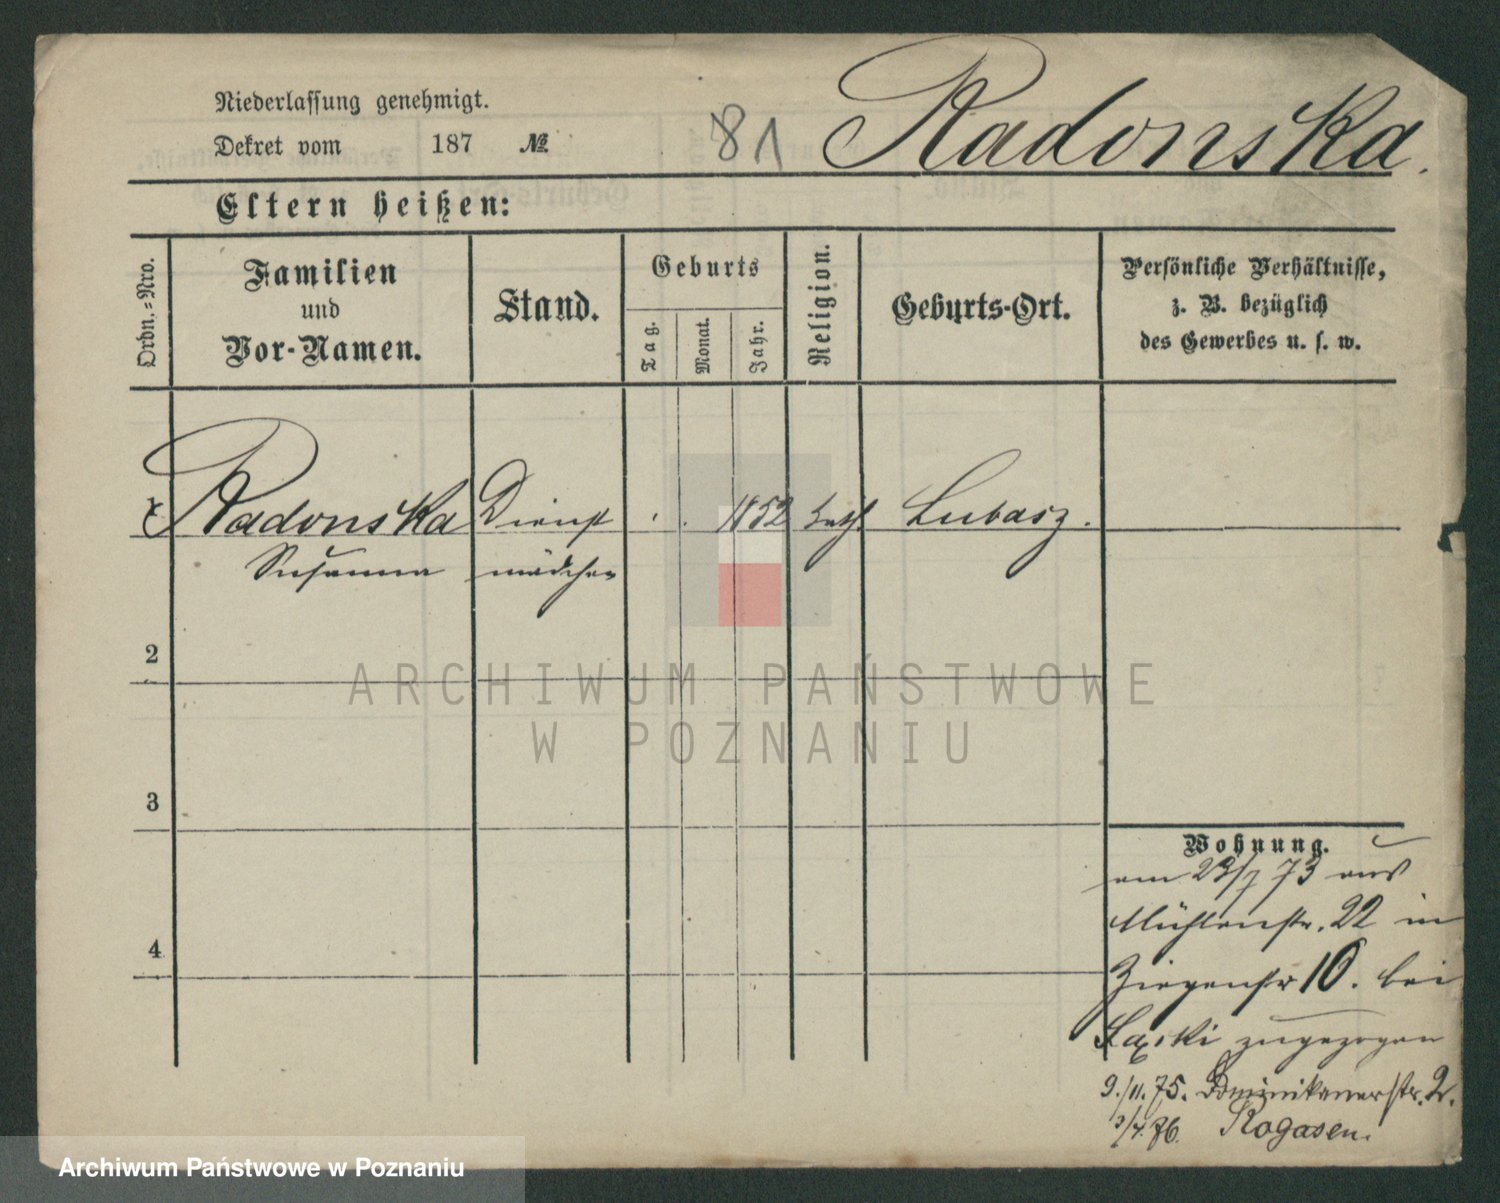 Niederlassung genehmigt.
Dekret vom 187 №
81
Radonska.
Eltern heißen:
Ordn.-Nro.
Familien
und
Vor-Namen.
Stand.
Geburts
Tag.
Monat.
Jahr.
Religion.
Geburts-Ort.
Persönliche Verhältnisse,
z. B. bezüglich
des Gewerbes u. s. w.
1 Radonska Dienst . . 1852 kath Lubasz.
Susanna mädchen
2
3
4
Wohnung.
am 23/7 73 aus
Mühlenstr. 22 in
Ziegenstr 10. bei
zugezogen
9./11. 75. Dominikanerstr. 2.
3/4. 76. Rogasen.
ARCHIWUM PAŃSTWOWE
W POZNANIU
Archiwum Państwowe w Poznaniu